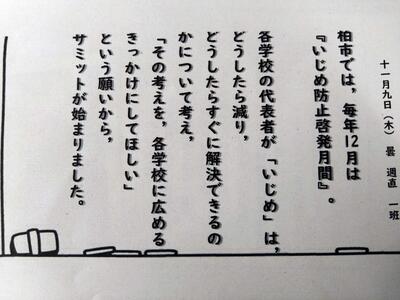 十一月九日(木) 曇 週直 一班
柏市では，毎年12月は
『いじめ防止啓発月間』。
各学校の代表者が「いじめ」は，
どうしたら減り，
どうしたらすぐに解決できるの
かについて考え，
「その考えを，各学校に広める
きっかけにしてほしい」
という願いから，
サミットが始まりました。